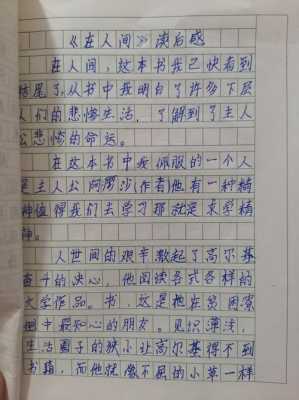 《在人间》读后感
在人间，这本书我已快看到
结尾了，从书中我明白了许多下层
人们的悲惨生活，了解到了主人
公悲惨的命运。
在这本书中我佩服的一个人
是主人公阿廖沙作者他有一种精
神值得我们去学习那就是求学精
神。
人世间的艰辛激起了高尔基
奋斗的决心，他阅读各式各样的
文学作品。书，这是他在贫困家
中最知心的朋友。见识薄浅，
生活圈子的狭小让高尔基得不到
书籍，而他就像不屈的小草一样